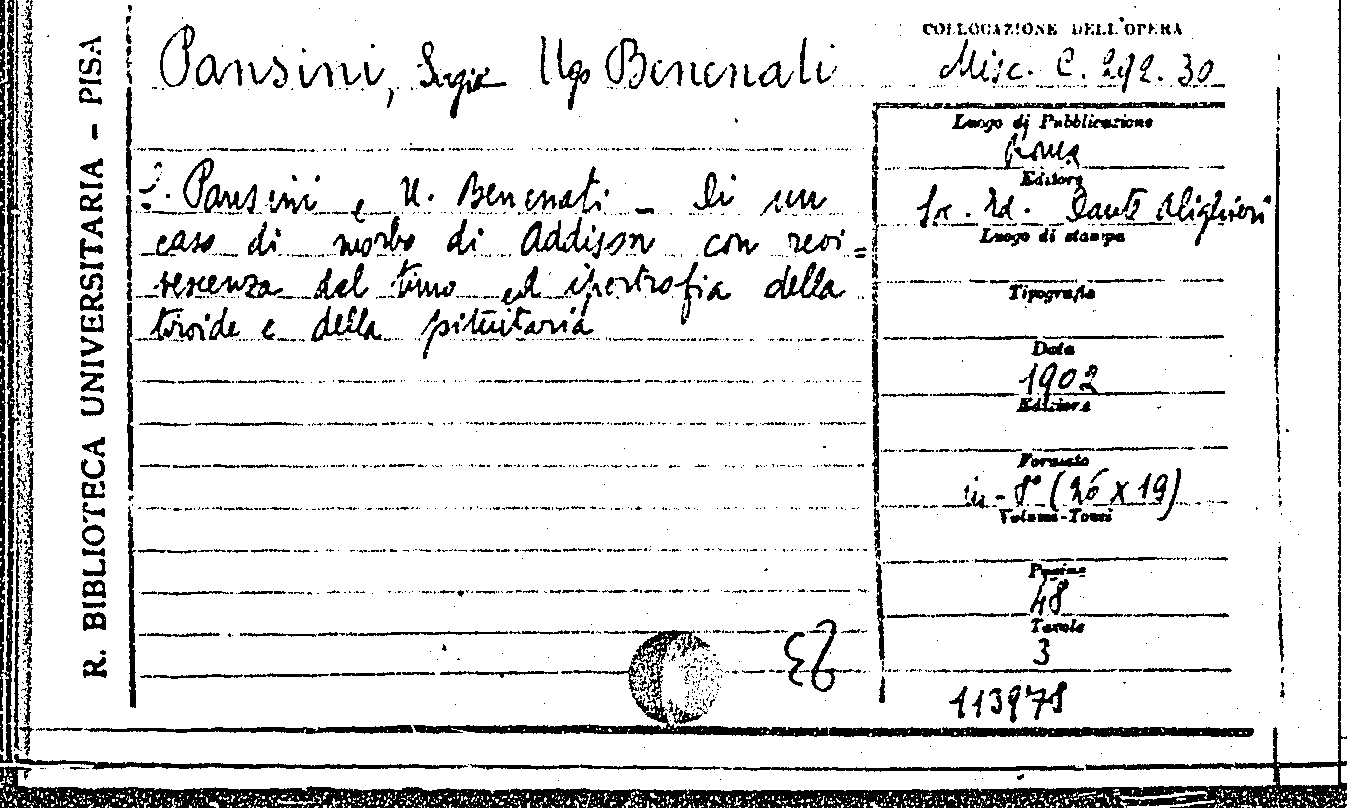 R. BIBLIOTECA UNIVERSITARIA – PISA
Pansini, Sergio Ugo Benenati
S. Pansini e U. Benenati – Di un
caso di morbo di Addison con revi=
vescenza del timo ed ipertrofia della
tiroide e della pituitaria
COLLOCAZIONE DELL'OPERA
Misc. C. 292. 30
Luogo di Pubblicazione
Roma
Editore
Soc. Ed. Dante Alighieri
Luogo di stampa
Tipografia
Data
1902
Edizione
Formato
in-8° (26 x 19)
Volumi-Tomi
Pagine
48
Tavole
3
113978